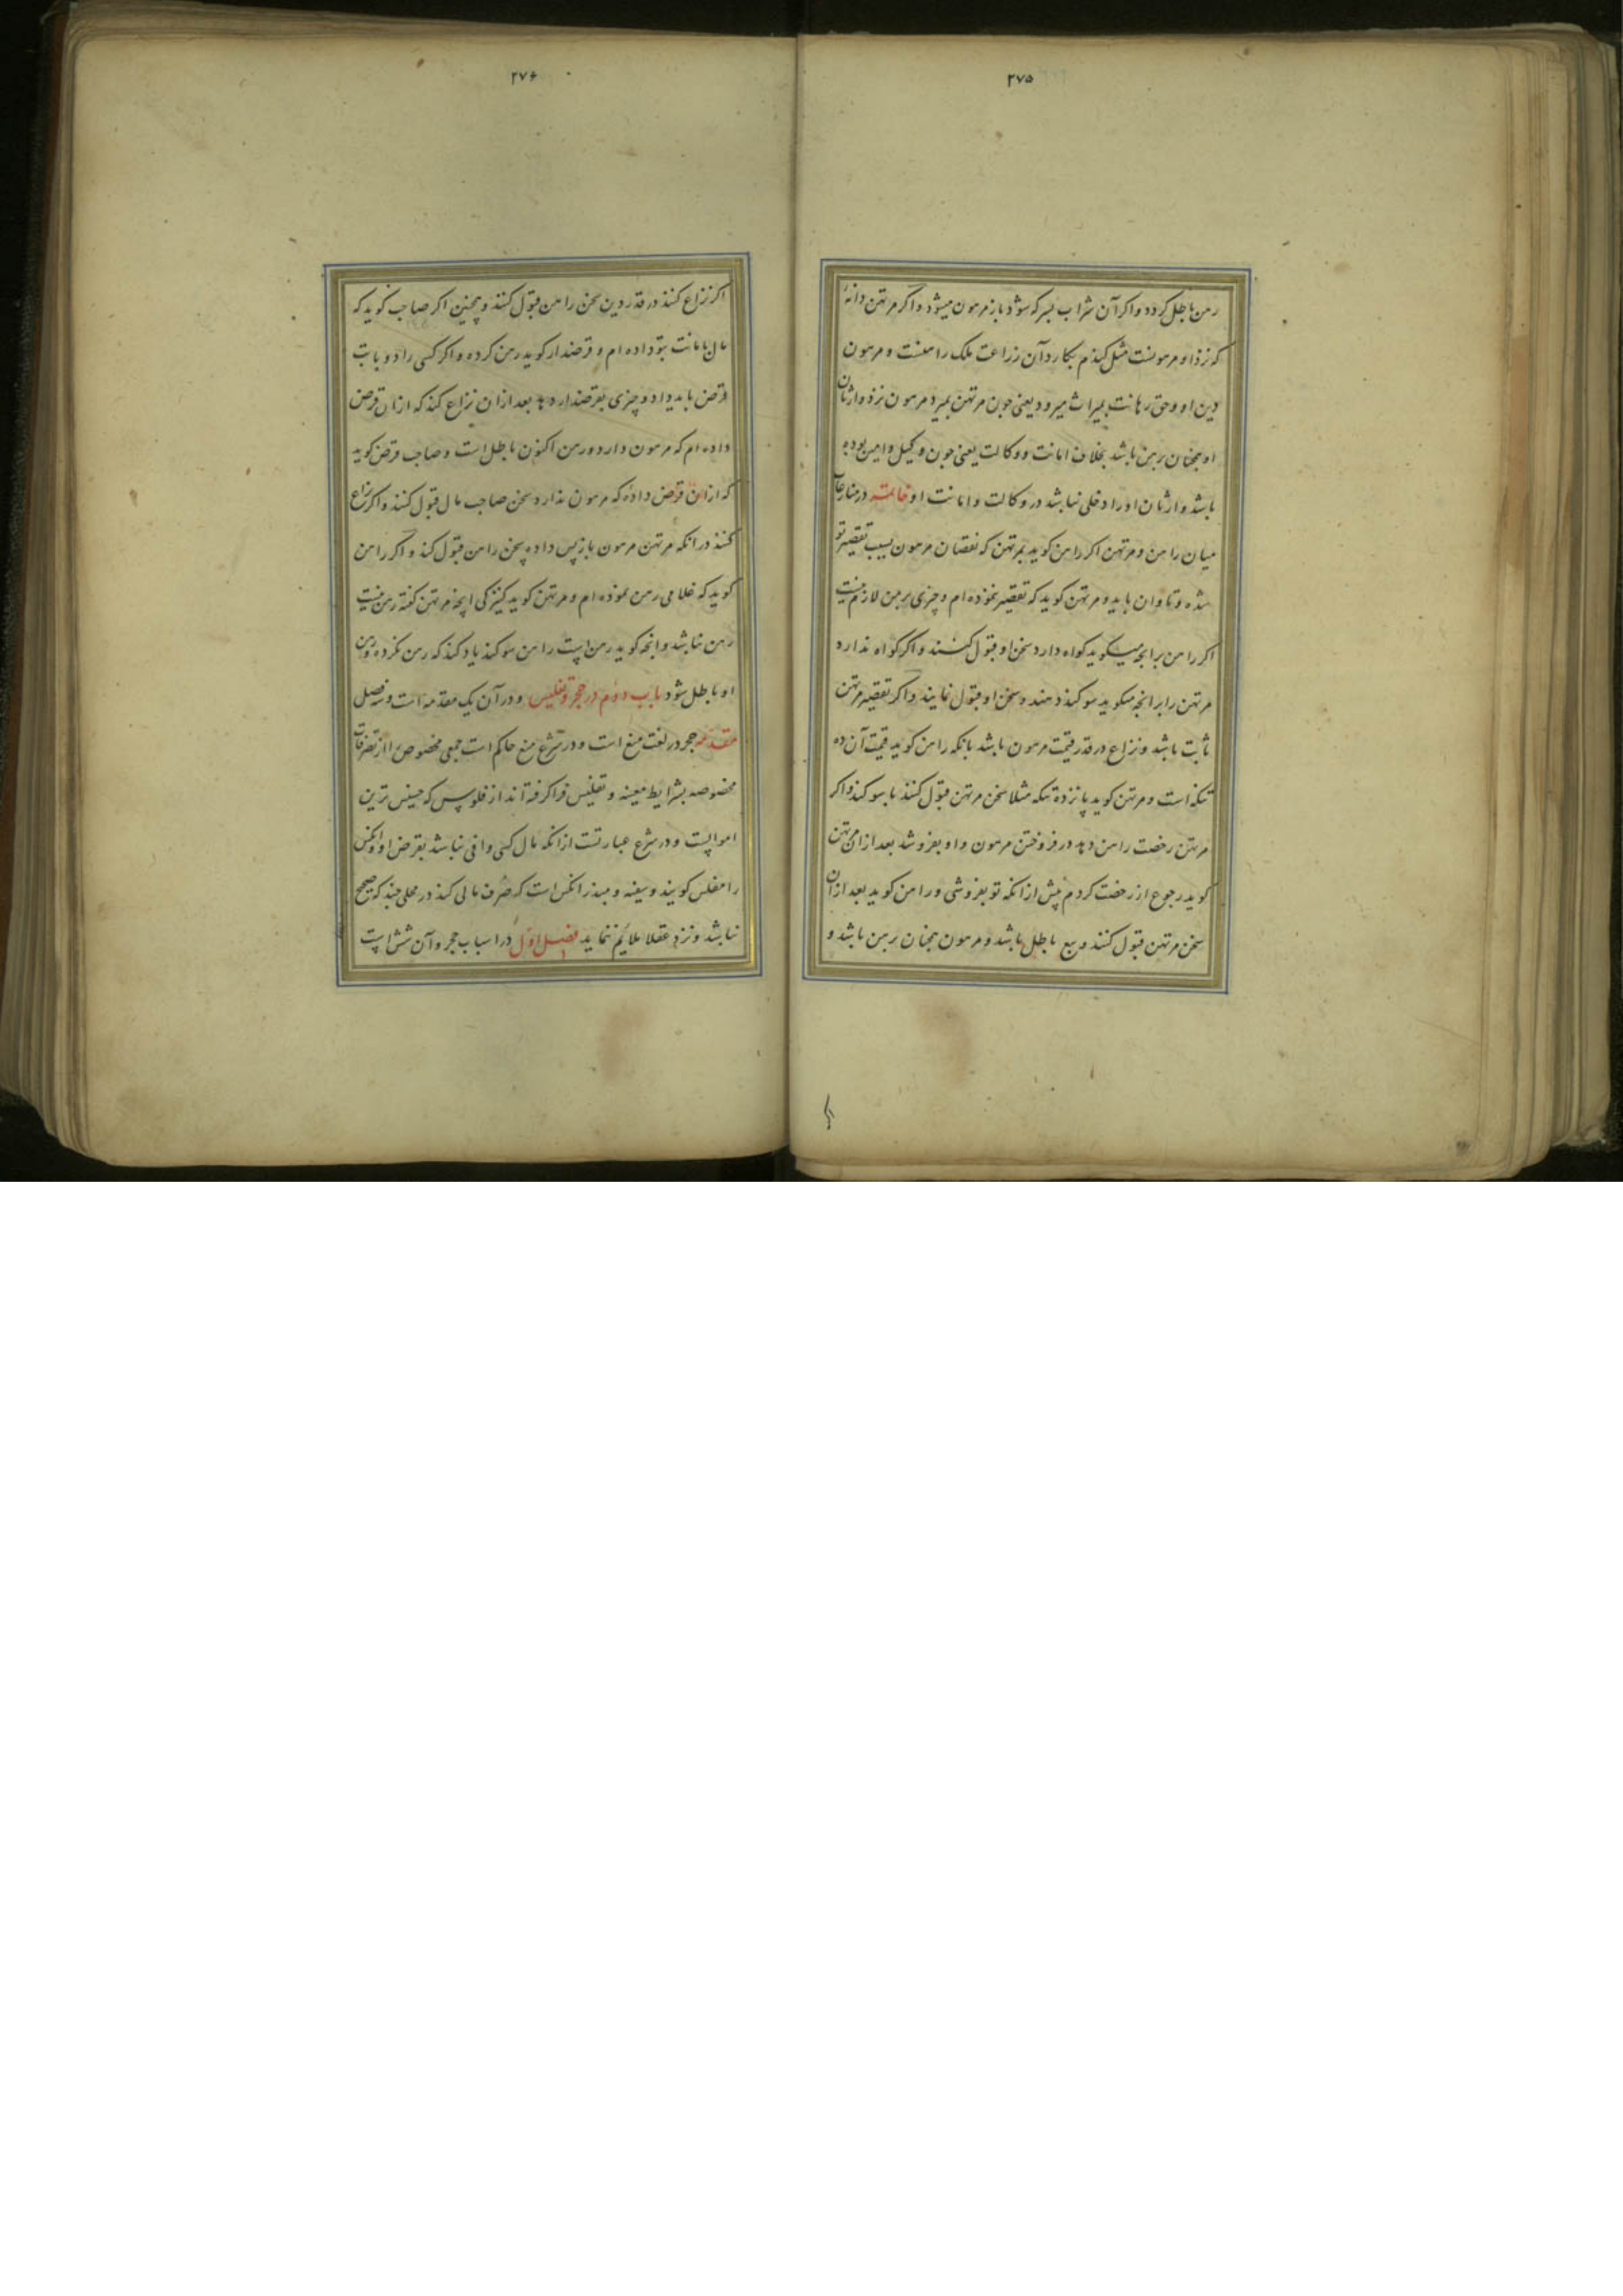 ۲۷۵
رهن باطل کردد و اکر آن شراب سرکه شود باز مرهون میشود و اکر مرتهن دانهٔ
که نزد او مرهونست مثل کندم بکارد آن زراعت ملک راهنست و مرهون
دین او و حق رهانت بمیراث میرود یعنی چون مرتهن بمیرد مرهون نزد وارثان
او همچنان رهن باشد بخلاف امانت و وکالت یعنی چون وکیل و امین بوده
باشد وارثان او را دخلی نباشد در وکالت و امانت او خاتمه در منازعات
میان راهن و مرتهن اکر راهن کوید بمرتهن که نقصان مرهون بسبب تقصیر تو
شده و تاوان باید و مرتهن کوید که تقصیر ننموده ام و چیزی بر من لازم نیست
اکر راهن بر انچه میکوید کواه دارد سخن او قبول کنند و اکر کواه ندارد
مرتهن را بر انچه میکوید سوکند دهند و سخن او قبول نمایند و اکر تقصیر مرتهن
ثابت باشد و نزاع در قدر قیمت مرهون باشد بانکه راهن کوید قیمت آن ده
تنکه است و مرتهن کوید پانزده تنکه مثلا سخن مرتهن قبول کنند با سوکند و اکر
مرتهن رخصت راهن دهد در فروختن مرهون و او بفروشد بعد ازان مرتهن
کوید رجوع از رخصت کردم پیش ازانکه تو بفروشی و راهن کوید بعد ازان
سخن مرتهن قبول کنند و بیع باطل باشد و مرهون همچنان رهن باشد و
۲۷۶
اکر نزاع کنند در قدر دین سخن راهن قبول کنند و همچنین اکر صاحب کوید که
مال بامانت بتو داده ام و قرضدار کوید رهن کرده و اکر کسی را دو بابت
قرض باید داد و چیزی بقرضدار دهد بعد ازان نزاع کند که ازان قرض
داده ام که مرهون دارد و رهن اکنون باطل است و صاحب قرض کوید
که ازان قرض داده که مرهون ندارد سخن صاحب مال قبول کنند و اکر نزاع
کنند در انکه مرتهن مرهون باز پس داده سخن راهن قبول کند و اکر راهن
کوید که غلامی رهن نموده ام و مرتهن کوید کنیزکی انچه مرتهن کفته رهن نیست
رهن نباشد و انچه کوید رهن است راهن سوکند یاد کند که رهن نکرده و رهن
او باطل شود باب دوم در حجر و تفلیس و در آن یک مقدمه است و سه فصل
مقدمه حجر در لغت منع است و در شرع منع حاکم است جمعی مخصوص را از تصرفات
مخصوصه بشرایط معینه و تفلیس فراکرفته اند از فلوس که خسیس ترین
اموالست و در شرع عبارتست ازانکه مال کسی وافی نباشد بقرض او و انکس
را مفلس کویند و سفیه و مبذر انکس است که صرف مالی کند در محلی چند که صحیح
نباشد و نزد عقلا ملائم ننماید فصل اول در اسباب حجر و آن شش است